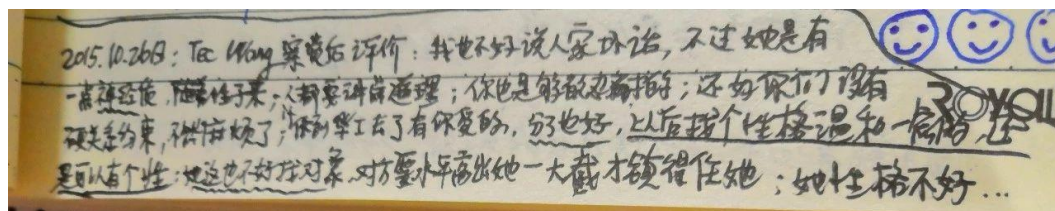 2015.10.26日: Tec Wang 察觉后评价: 我也不好说人家坏话, 不过她是有
一点神经质, 随着性子来; 人都要讲道理; 你也是够能忍耐的; 还好你们没有
硬关系约束, 不然麻烦了; 去了有你受的, 分了也好, 以后找个性格温和一点的, 还
是可以有个性; 她这也不好找对象, 对方要水平高出她一大截才镇得住她; 她性格不好...
ROYAL